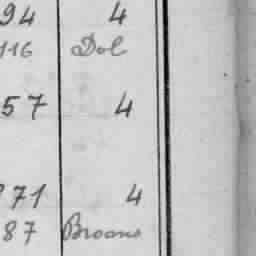 94 4
116 Dol
57 4
71 4
87 Broons